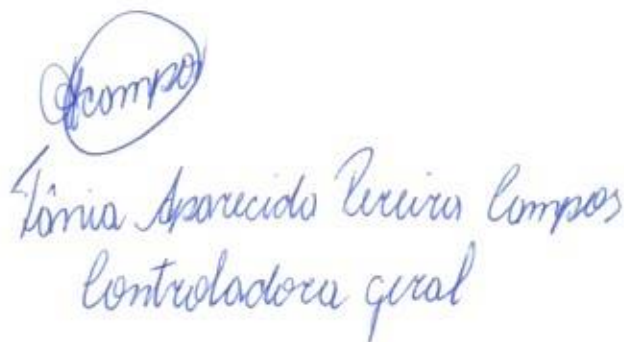 Acampos
Tânia Aparecida Pereira Campos
Controladora geral